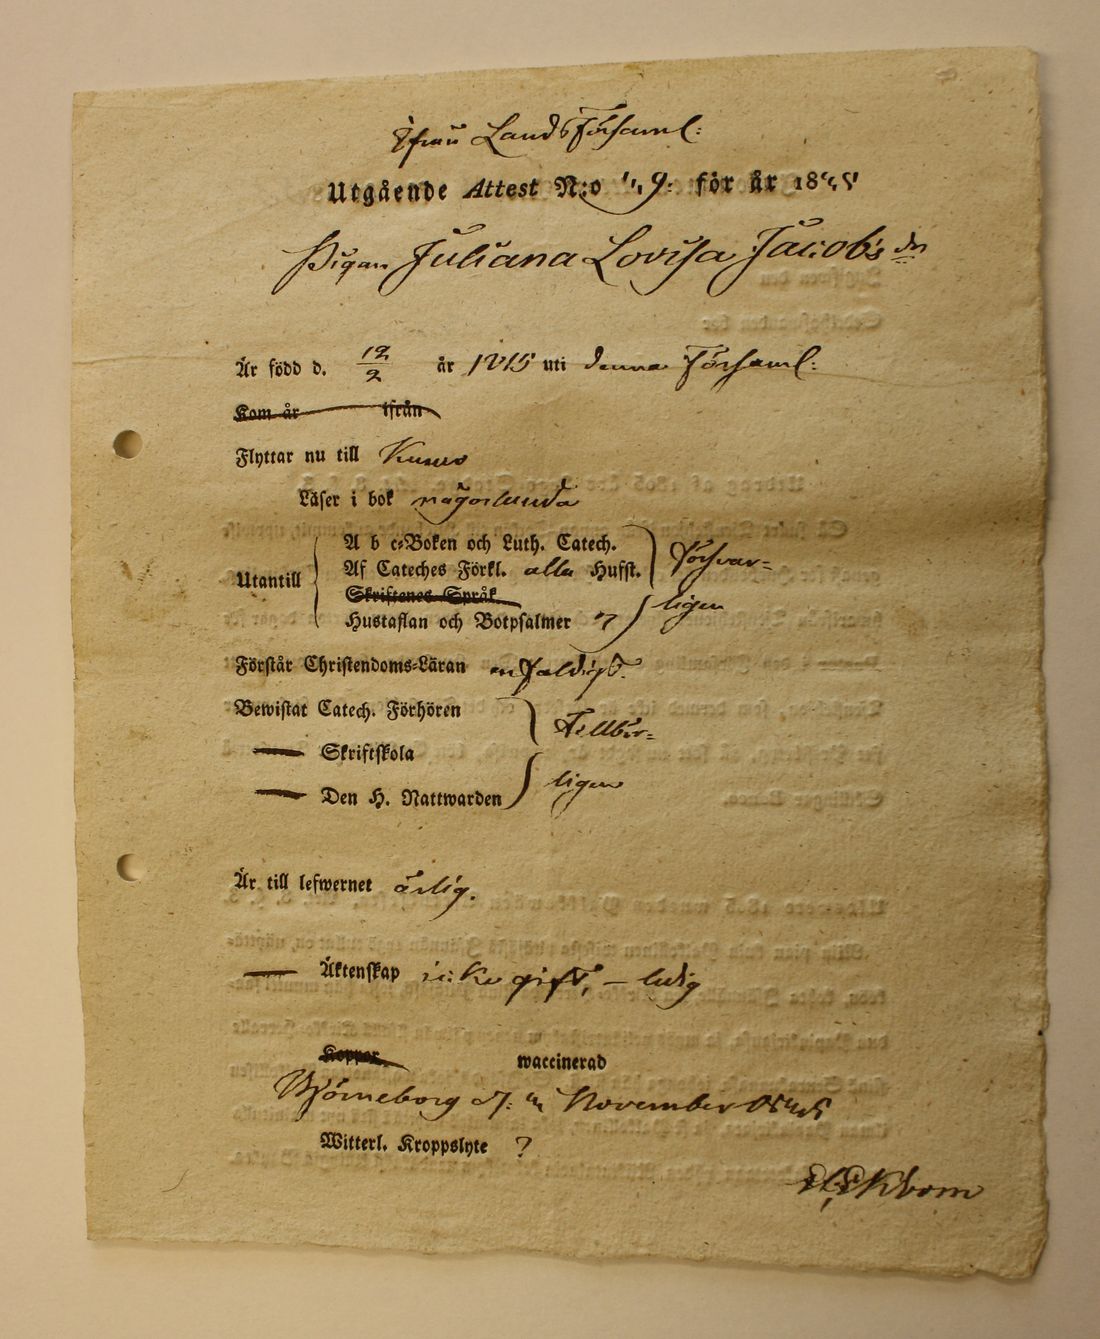 ifrån LandsFörsaml:
Utgående Attest N:o 119: för år 1845
Pigan Juliana Lovisa Jacobsdr
Är född d. 12/2 år 1815 uti denna Församl:
Kom år ifrån
Flyttar nu till Kumo
Läser i bok någorlunda
A b c-Boken och Luth. Catech.
Utantill Af Cateches Förkl. alla Hufst. Försvar=
Skriftenes Språk ligen
Hustaflan och Botpsalmer
Förstår Christendoms-Läran enfaldigt.
Bewistat Catech. Förhören Tillbör=
— Skriftskola
— Den H. Nattwarden ligen
Är till lefwernet ärlig.
— Äktenskap icke gift, – ledig
Koppor waccinerad
Björneborg d. November 1845
Witterl. Kroppslyte ?
Ekbom